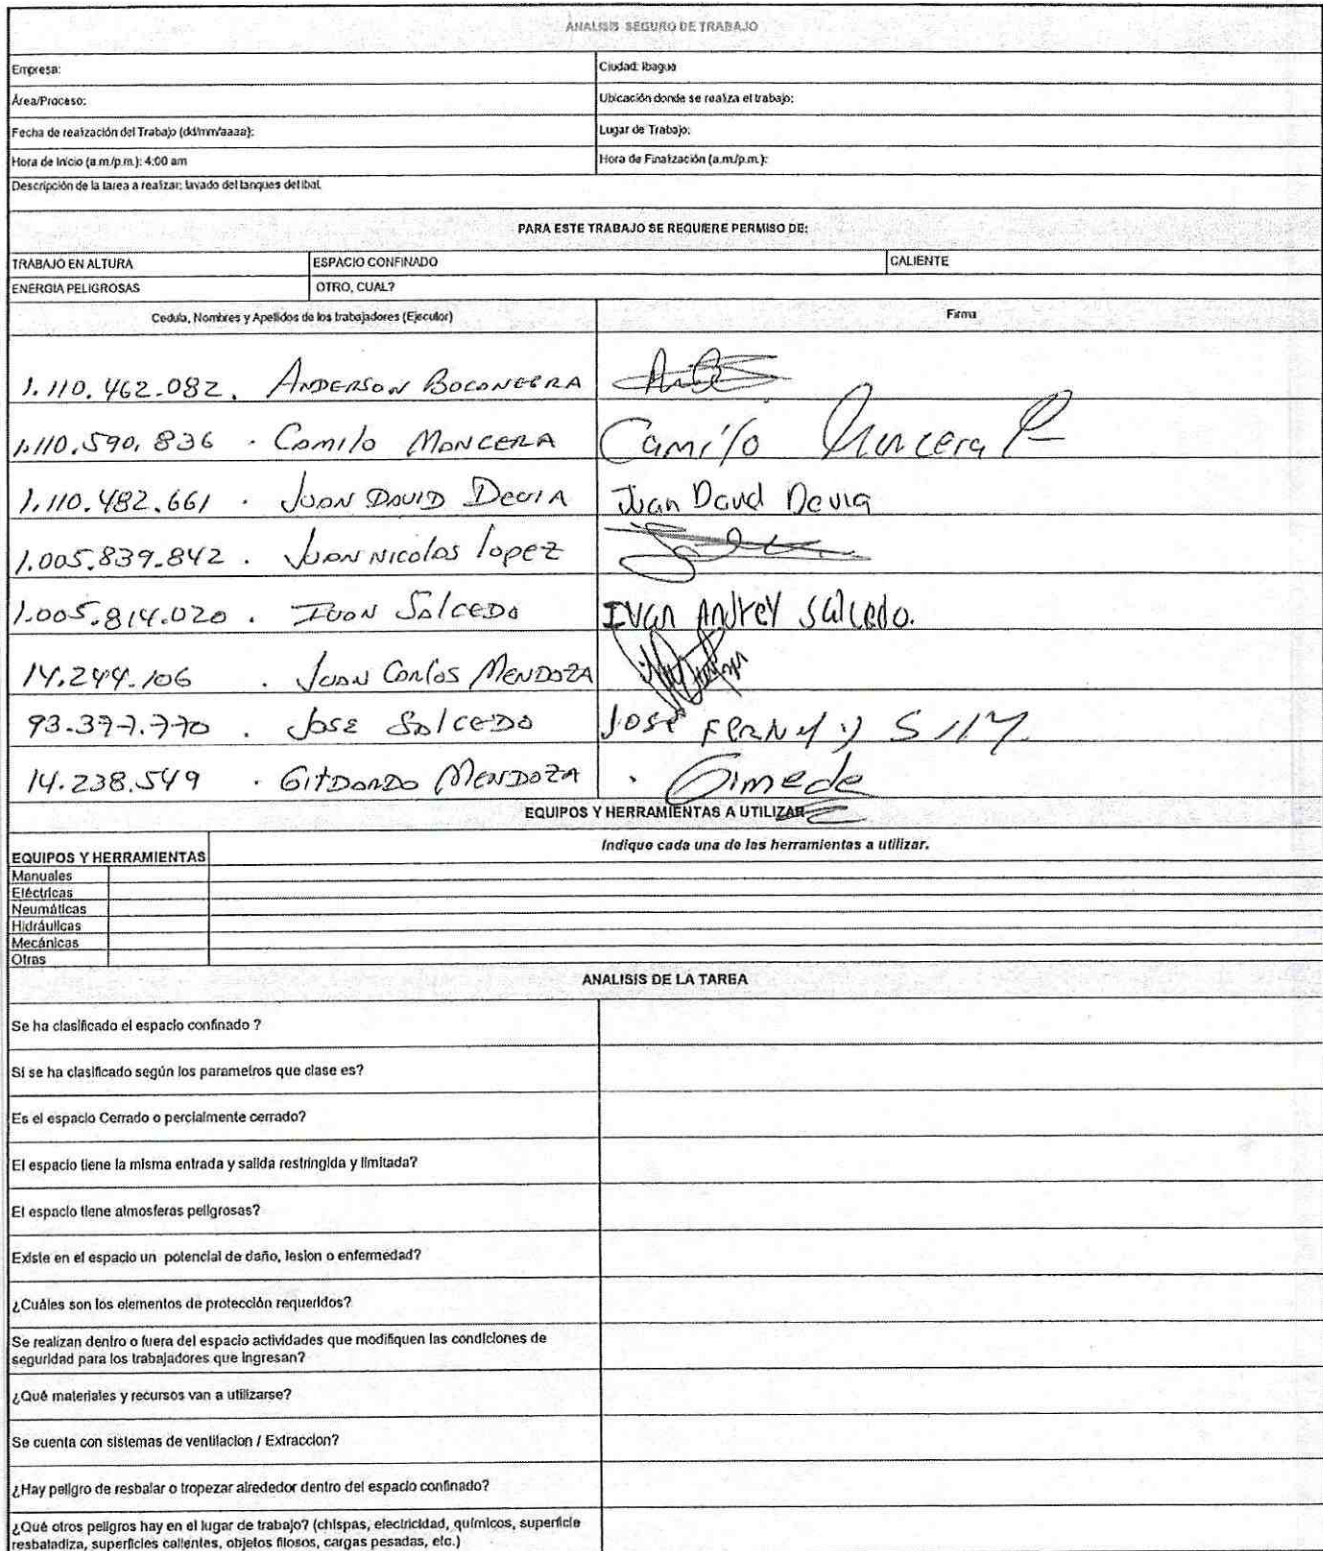 ANALISIS SEGURO DE TRABAJO
Empresa:
Ciudad: Ibagué
Área/Proceso:
Ubicación donde se realiza el trabajo:
Fecha de realización del Trabajo (dd/mm/aaaa):
Lugar de Trabajo:
Hora de Inicio (a.m./p.m.): 4:00 am
Hora de Finalización (a.m./p.m.):
Descripción de la tarea a realizar: lavado del tanques del ibal.
PARA ESTE TRABAJO SE REQUIERE PERMISO DE:
TRABAJO EN ALTURA ESPACIO CONFINADO CALIENTE
ENERGIA PELIGROSAS OTRO, CUAL?
Cedula, Nombres y Apellidos de los trabajadores (Ejecutor) Firma
1.110.462.082. ANDERSON BOCANEGRA
1.110.590.836 . Camilo MONCERA Camilo Muncera
1.110.482.661 . JUAN DAVID DEVIA Juan David Devia
1.005.839.842 . JUAN NICOLAS lopez
1.005.814.020 . IVAN SALCEDO IVan ANdrey Salcedo.
14.244.106 . JUAN CARLOS MENDOZA
93.377.770 . JOSE SALCEDO JOSE
14.238.549 . MENDOZA
EQUIPOS Y HERRAMIENTAS A UTILIZAR
EQUIPOS Y HERRAMIENTAS Indique cada una de las herramientas a utilizar.
Manuales
Eléctricas
Neumáticas
Hidráulicas
Mecánicas
Otras
ANALISIS DE LA TAREA
Se ha clasificado el espacio confinado ?
Si se ha clasificado según los parametros que clase es?
Es el espacio Cerrado o percialmente cerrado?
El espacio tiene la misma entrada y salida restringida y limitada?
El espacio tiene atmosferas peligrosas?
Existe en el espacio un potencial de daño, lesion o enfermedad?
¿Cuáles son los elementos de protección requeridos?
Se realizan dentro o fuera del espacio actividades que modifiquen las condiciones de
seguridad para los trabajadores que ingresan?
¿Qué materiales y recursos van a utilizarse?
Se cuenta con sistemas de ventilacion / Extraccion?
¿Hay peligro de resbalar o tropezar alrededor dentro del espacio confinado?
¿Qué otros peligros hay en el lugar de trabajo? (chispas, electricidad, químicos, superficie
resbaladiza, superficies calientes, objetos filosos, cargas pesadas, etc.)